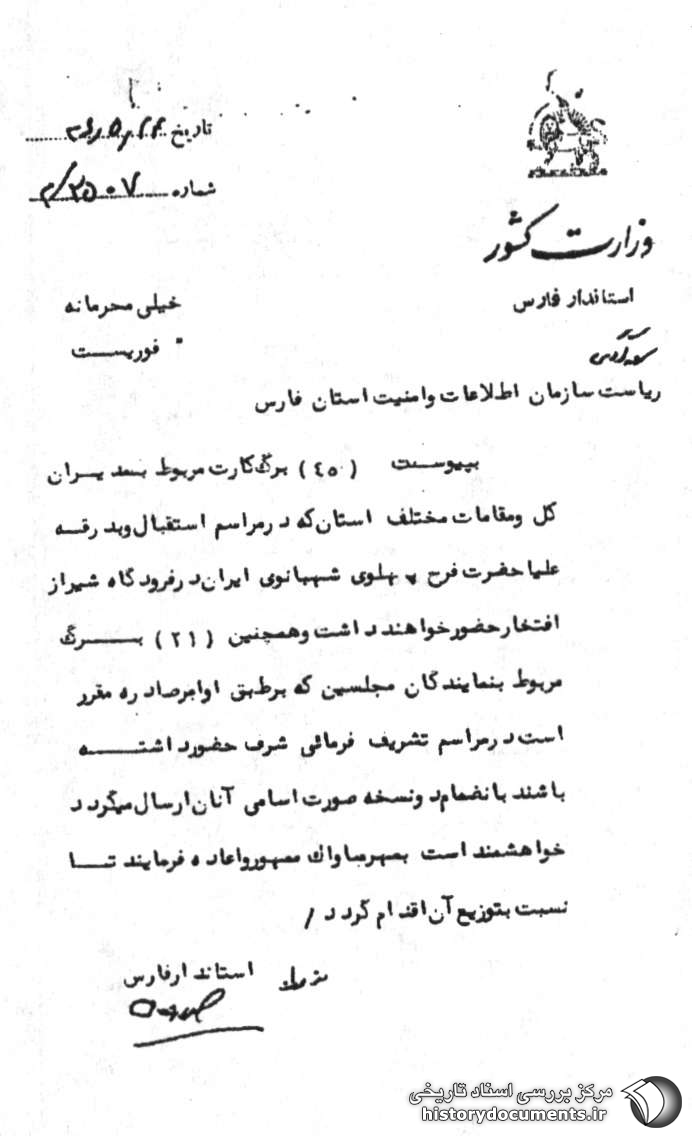 تاریخ
شماره ۲۵۰۷/م
وزارت کشور
استاندار فارس
خیلی محرمانه
فوریست
ریاست سازمان اطلاعات وامنیت استان فارس
بپیوست (٤٥) برگ کارت مربوط بمدیران
کل ومقامات مختلف استان که درمراسم استقبال وبدرقه
علیاحضرت فرح پهلوی شهبانوی ایران درفرودگاه شیراز
افتخارحضورخواهند داشت وهمچنین (٢١) برگ
مربوط بنمایندگان مجلسین که برطبق اوامرصادره مقرر
است درمراسم تشریف فرمائی شرف حضورداشته
باشند بانضمام دونسخه صورت اسامی آنان ارسال میگردد
خواهشمند است بمهرساواک ممهورواعاده فرمایند تا
نسبت بتوزیع آن اقدام گردد /
استاندارفارس
مرکز بررسی اسناد تاریخی
historydocuments.ir